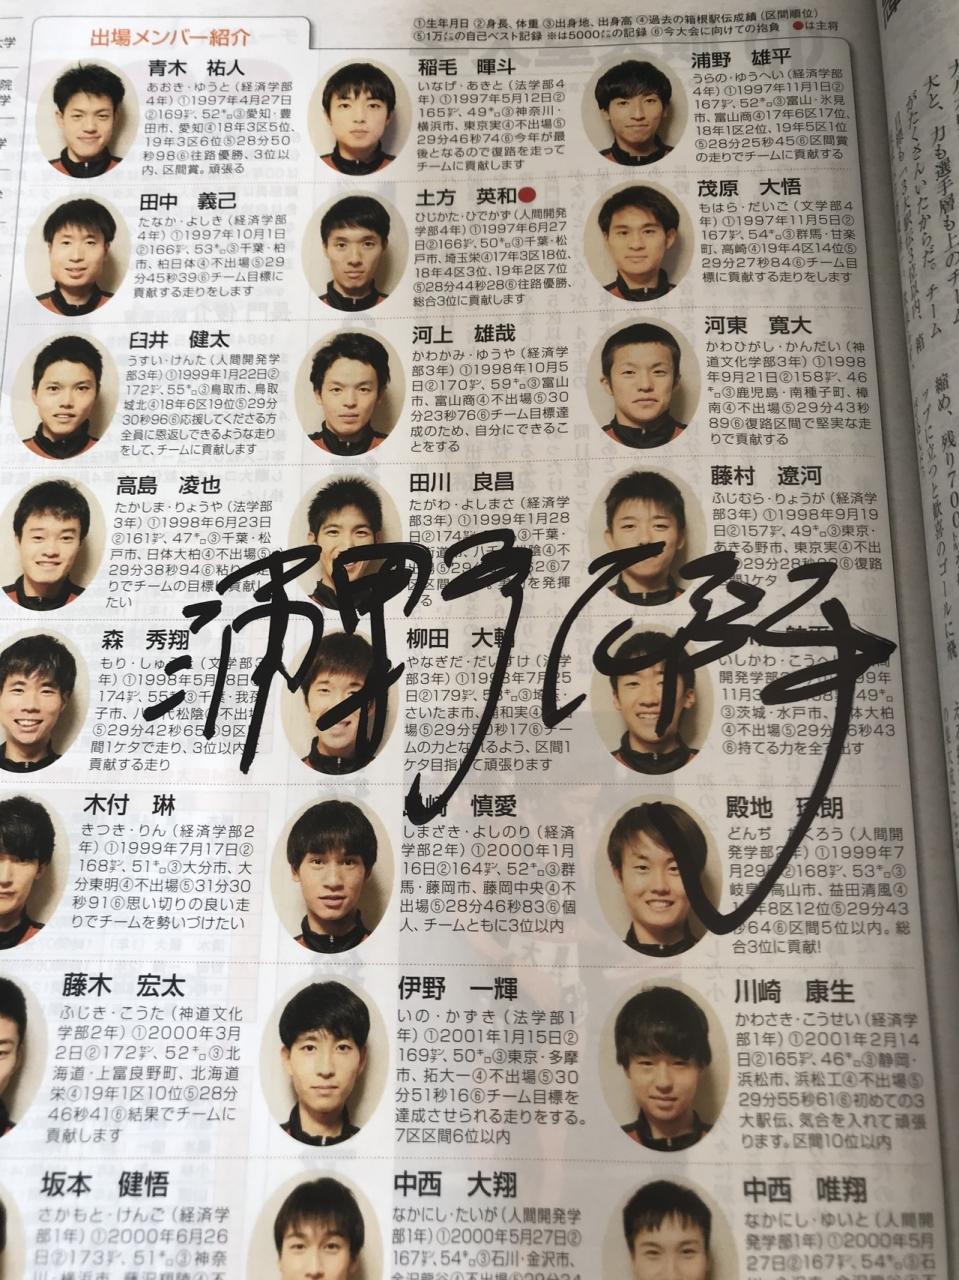 ①生年月日 ②身長、体重 ③出身地、出身高 ④過去の箱根駅伝成績（区間順位）
⑤1万㍍の自己ベスト記録 ※は5000㍍の記録 ⑥今大会に向けての抱負 ●は主将
出場メンバー紹介
青木 祐人
あおき・ゆうと（経済学部
4年）①1997年4月27日
②169㌢、52㌔③愛知・豊
田市、愛知④18年3区5位、
19年3区6位⑤28分50
秒98⑥往路優勝、3位以
内、区間賞。頑張る
稲毛 暉斗
いなげ・あきと（法学部4
年）①1997年5月12日②
165㌢、49㌔③神奈川・
横浜市、東京実④不出場⑤
29分46秒74⑥今年が最
後となるので復路を走って
チームに貢献します
浦野 雄平
うらの・ゆうへい（経済学部
4年）①1997年11月1日②
167㌢、52㌔③富山・氷見
市、富山商④17年6区17位、
18年1区2位、19年5区1位
⑤28分25秒45⑥区間賞
の走りでチームに貢献する
田中 義己
たなか・よしき（経済学部
4年）①1997年10月1日
②166㌢、53㌔③千葉・柏
市、柏日体④不出場⑤29
分45秒39⑥チーム目標に
貢献する走りをします
土方 英和●
ひじかた・ひでかず（人間開発
学部4年）①1997年6月27
日②166㌢、50㌔③千葉・松
戸市、埼玉栄④17年3区18位、
18年4区3位、19年2区7位
⑤28分44秒28⑥往路優勝、
総合3位に貢献します
茂原 大悟
もはら・だいご（文学部4
年）①1997年11月5日②
167㌢、54㌔③群馬・甘楽
町、高崎④19年4区14位⑤
29分27秒84⑥チーム目
標に貢献する走りをします
臼井 健太
うすい・けんた（人間開発学
部3年）①1999年1月22日②
172㌢、55㌔③鳥取市、鳥取
城北④18年6区19位⑤29分
30秒96⑥応援してくださる方
全員に恩返しできるような走り
をして、チームに貢献します
河上 雄哉
かわかみ・ゆうや（経済学
部3年）①1998年10月5
日②170㌢、59㌔③富山
市、富山商④不出場⑤30
分23秒76⑥チーム目標達
成のため、自分にできるこ
とをする
河東 寛大
かわひがし・かんだい（神
道文化学部3年）①1998
年9月21日②158㌢、46
㌔③鹿児島・南種子町、樟
南④不出場⑤29分43秒
89⑥復路区間で堅実な走
りで貢献する
高島 凌也
たかしま・りょうや（法学部
3年）①1998年6月23日
②161㌢、47㌔③千葉・松
戸市、日体大柏④不出場⑤
29分38秒94⑥粘り
りでチームの目標に貢献し
たい
田川 良昌
たがわ・よしまさ（経済学
部3年）①1999年1月28
日②174 ③千葉・
街道市、八千 陰④不
区区間 を発揮
る
藤村 遼河
ふじむら・りょうが（経済学
部3年）①1998年9月19
日②157㌢、49㌔③東京・
あきる野市、東京実④不出
29分28秒 ⑥復路
間1ケタ
浦野雄平
森 秀翔
もり・しゅ （文学部3
年）①1998年5月 8日
174㌢、55 ③千葉・我孫
子市、八 代松陰 不出場
⑤29分42秒65 9区
間1ケタで走り、3位以内に
貢献する走り
柳田 大輔
やなぎだ・だい け（法学
部3年）①1998年7月25
日②179㌢、 ③埼玉・
さいたま市、 和実④
場⑤29分 0秒17⑥チー
ムの力とな れるよう、区間1
ケタ目指して頑張ります
いしかわ・こう
開発学部
11月3 49㌔
③茨城・水戸市、 体大柏
④不出場⑤29分 6秒43
⑥持てる力を全て出す
木付 琳
きつき・りん（経済学部2
年）①1999年7月17日②
168㌢、51㌔③大分市、大
分東明④不出場⑤31分30
秒91⑥思い切りの良い走
りでチームを勢いづけたい
島﨑 慎愛
しまざき・よしのり（経済
学部2年）①2000年1月
16日②164㌢、52㌔③群
馬・藤岡市、藤岡中央④不
出場⑤28分46秒83⑥個
人、チームともに3位以内
殿地 琢朗
どんぢ・たくろう（人間開
発学部2年）①1999年7
月29日②168㌢、53㌔③
岐阜・高山市、益田清風④
19年8区12位⑤29分43
秒64⑥区間5位以内。総
合3位に貢献!
藤木 宏太
ふじき・こうた（神道文化
学部2年）①2000年3月
2日②172㌢、52㌔③北
海道・上富良野町、北海道
栄④19年1区10位⑤28分
46秒41⑥結果でチームに
貢献します
伊野 一輝
いの・かずき（法学部1
年）①2001年1月15日②
169㌢、50㌔③東京・多摩
市、拓大一④不出場⑤30
分51秒16⑥チーム目標を
達成させられる走りをする。
7区区間6位以内
川崎 康生
かわさき・こうせい（経済学
部1年）①2001年2月14
日②165㌢、46㌔③静岡・
浜松市、浜松工④不出場⑤
29分55秒61⑥初めての3
大駅伝、気合を入れて頑張
ります。区間10位以内
坂本 健悟
さかもと・けんご（経済学
部1年）①2000年6月26
日②173㌢、51㌔③神奈
川・横浜市、藤沢翔陵④不
中西 大翔
なかにし・たいが（人間開発学
部1年）①2000年5月27日②
167㌢、54㌔③石川・金沢市、
金沢龍谷④不出場⑤29分24
中西 唯翔
なかにし・ゆいと（人間開
発学部1年）①2000年5月
27日②167㌢、54㌔③石